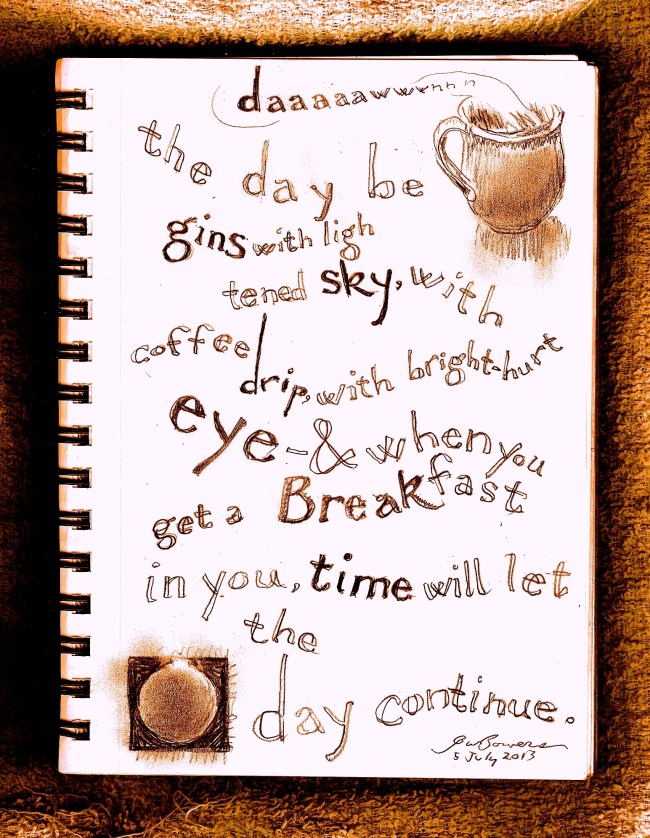 daaaaawwwnnn
the day be
gins with ligh
tened sky, with
coffee drip, with bright-hurt
eye - & when you
get a Breakfast
in you, time will let
the
day continue.
Bowers
5 July 2013